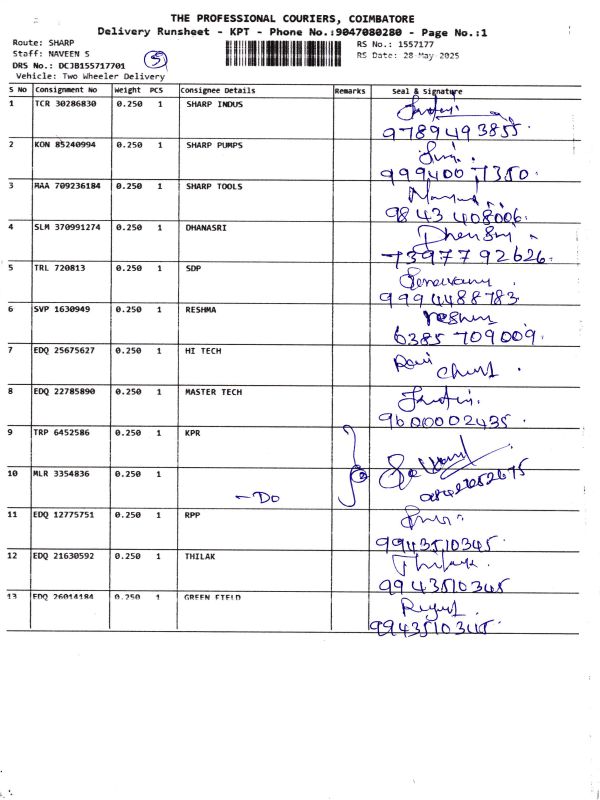 THE PROFESSIONAL COURIERS, COIMBATORE
Delivery Runsheet - KPT - Phone No.:9047080280 - Page No.:1
Route: SHARP
Staff: NAVEEN S
5
DRS No.: DCJB155717701
Vehicle: Two Wheeler Delivery
RS No.: 1557177
RS Date: 28-May-2025
S No Consignment No Weight PCS Consignee Details Remarks Seal & Signature
1 TCR 30286830 0.250 1 SHARP INDUS
9789493855.
2 KON 85240994 0.250 1 SHARP PUMPS
3 MAA 709236184 0.250 1 SHARP TOOLS
9843408006.
4 SLM 370991274 0.250 1 DHANASRI
7397792626.
5 TRL 720813 0.250 1 SDP
9994488783.
6 SVP 1630949 0.250 1 RESHMA
reshma
6385 709009.
7 EDQ 25675627 0.250 1 HI TECH
8 EDQ 22785890 0.250 1 MASTER TECH
9600002435.
9 TRP 6452586 0.250 1 KPR
10 MLR 3354836 0.250 1 -Do
11 EDQ 12775751 0.250 1 RPP
9943510345.
12 EDQ 21630592 0.250 1 THILAK
9943510345.
13 EDQ 26014184 0.250 1 GREEN FIELD
9943510345.